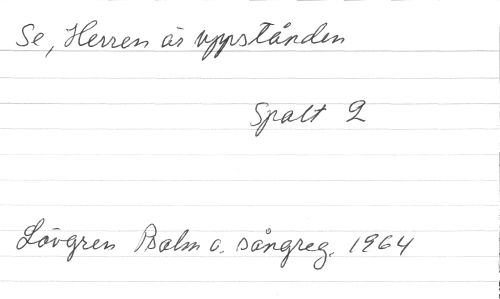 Se, Herren är uppstånden
Spalt 2
Lövgren Psalm o. sångreg. 1964